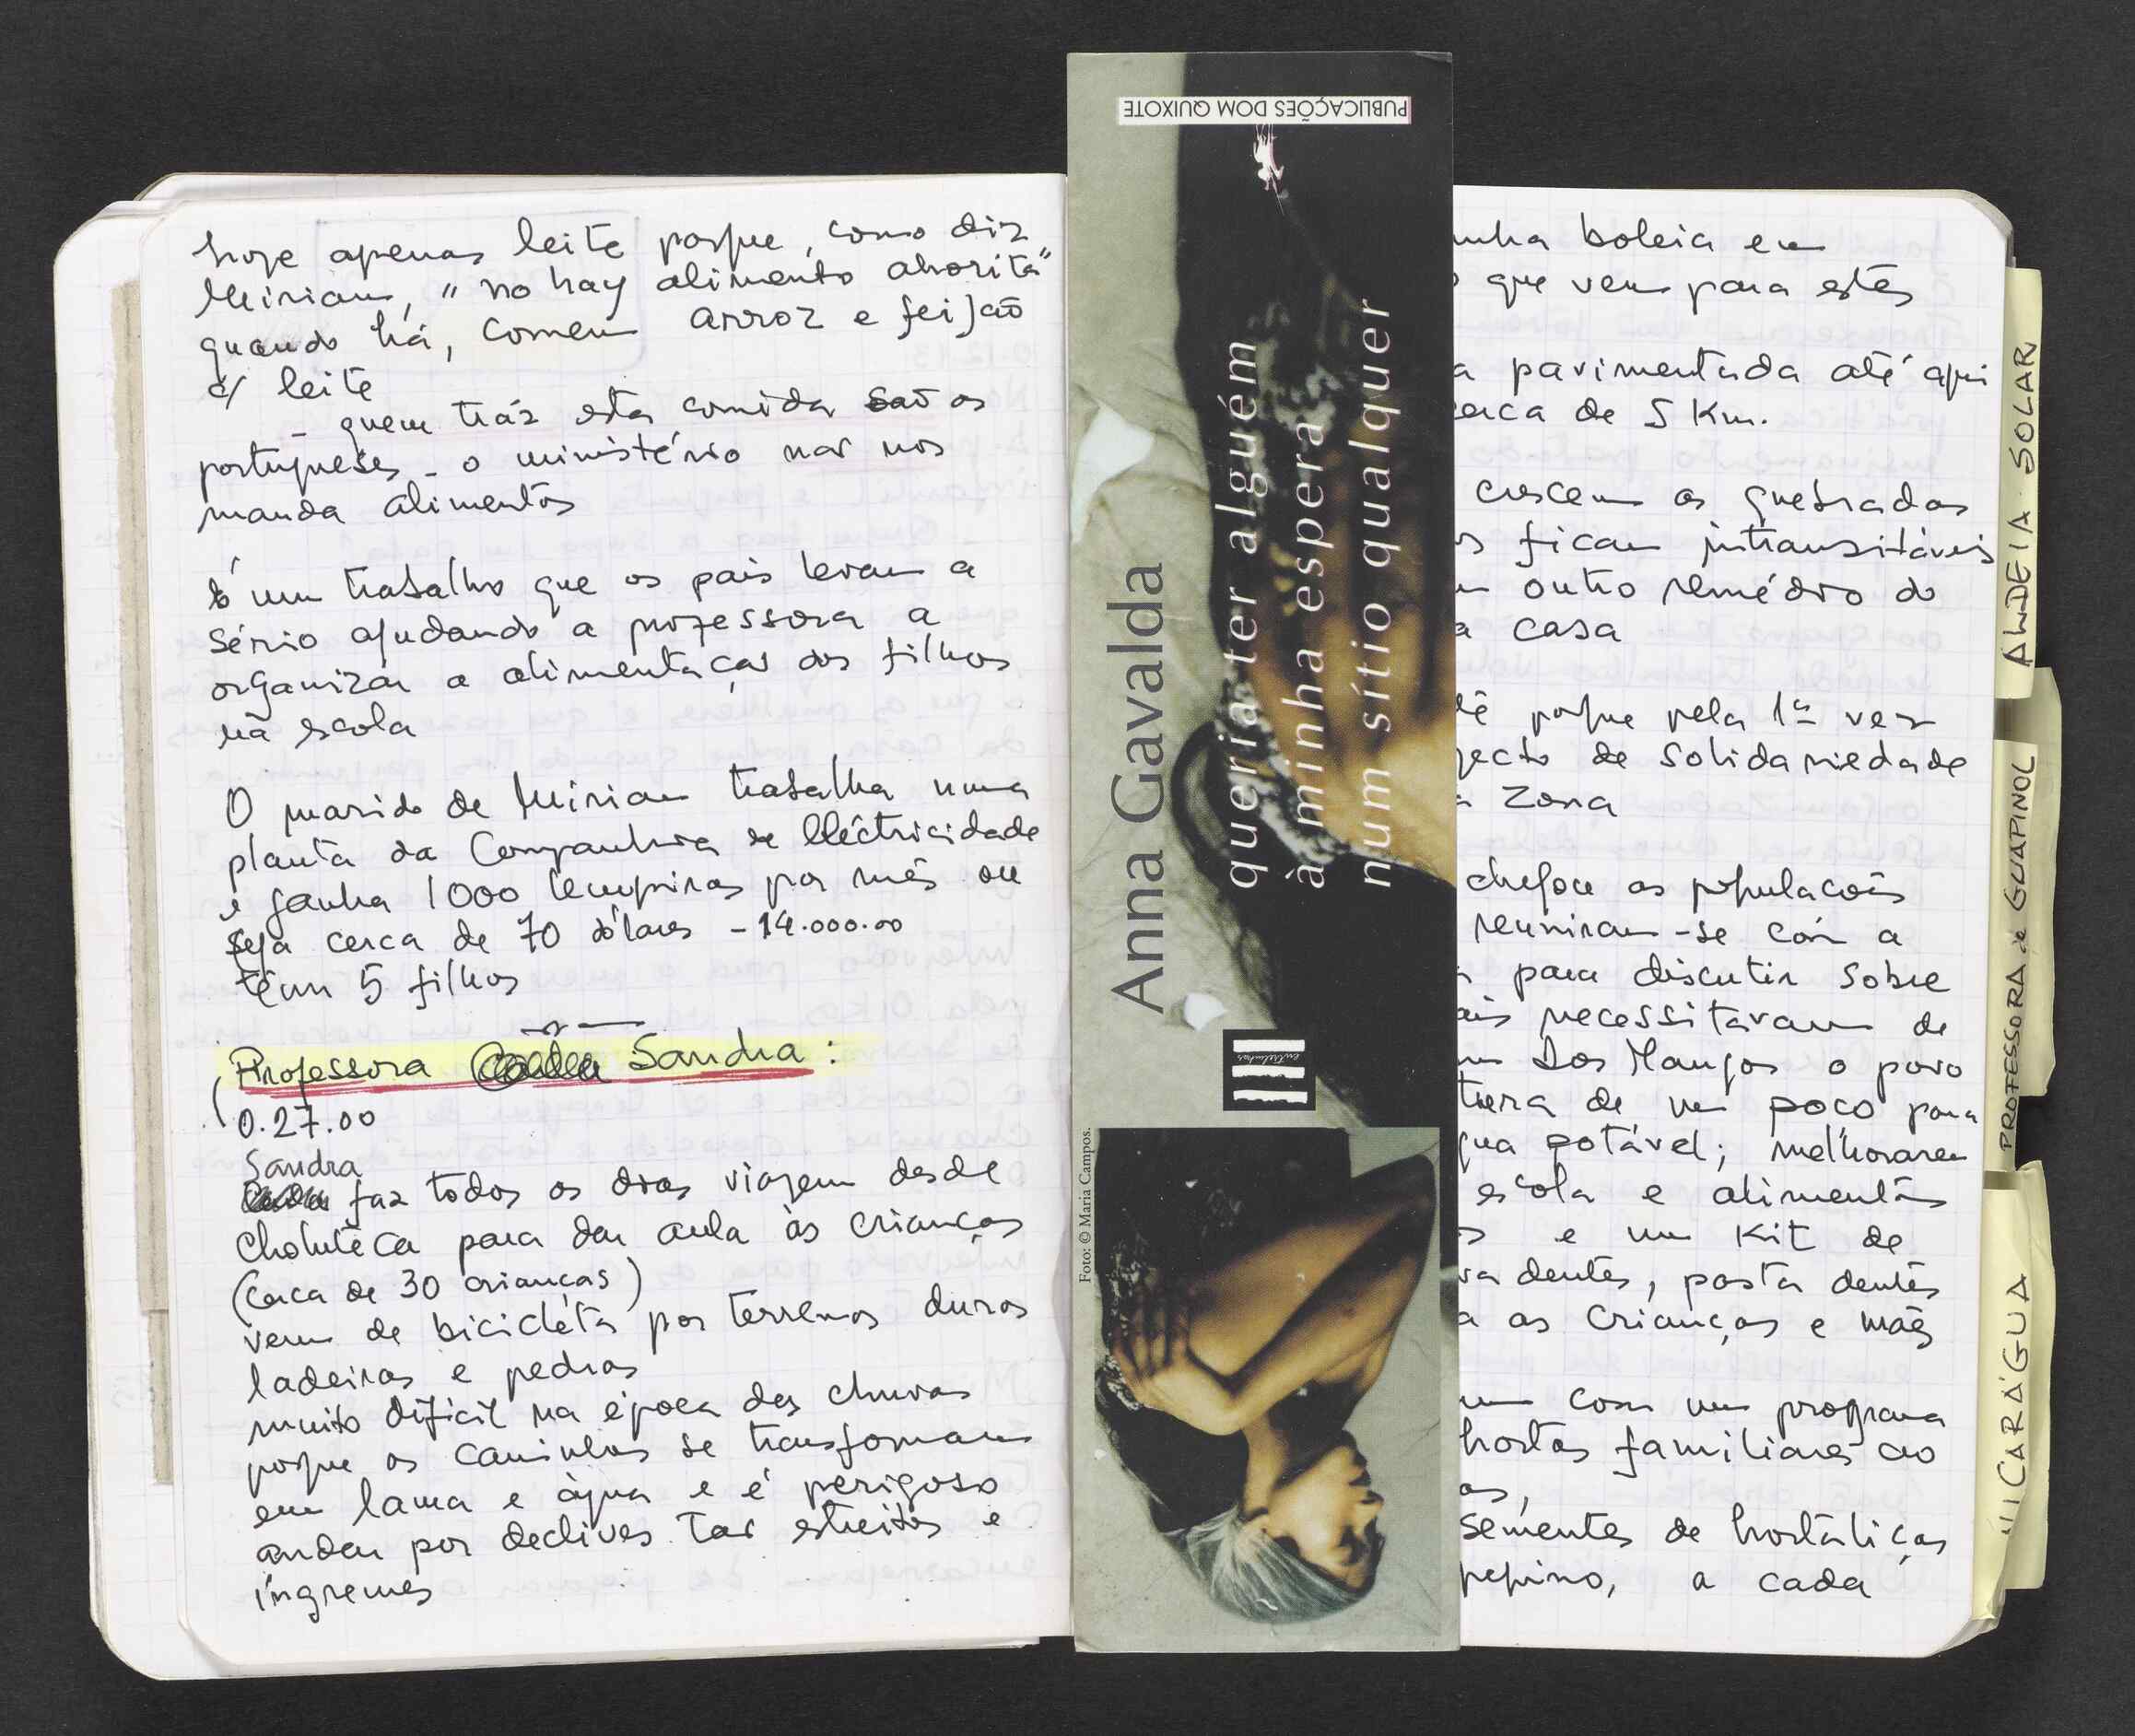 hoje apenas leite porque, como diz
Miriam, "no hay alimento ahorita"
quando há, comem arroz e feijão
c/ leite
- quem trás esta comida são os
portugueses - o ministério não nos
manda alimentos
É um trabalho que os pais levam a
sério ajudando a professora a
organizar a alimentação dos filhos
na escola
O marido de Miriam trabalha numa
planta da Companhia de Eléctricidade
e ganha 1000 lempiras por mês ou
seja cerca de 70 dólares - 14.000.00
têm 5 filhos
Professora Sandra :
0.27.00
Sandra
faz todos os dias viagem desde
Choluteca para dar aula às crianças
(cerca de 30 crianças)
vem de bicicleta por terrenos duros
ladeiras e pedras
muito dificil na época das chuvas
porque os caminhos se transformam
em lama e àgua e é perigoso
andar por declives tão estreitos e
íngremes
PUBLICAÇÕES DOM QUIXOTE
Anna Gavalda
queria ter alguém
à minha espera
num sítio qualquer
entrelinhas
Foto: © Maria Campos.
nha boleia em
que vem para estes
a pavimentada até aqui
erca de 5 Km.
crescem as quebradas
os ficam intransitáveis
outro remédio do
a casa
té porque pela 1ª vez
jecto de solidariedade
a zona
chefou as populacoës
reuniram-se com a
para discutir sobre
ais necessitavam de
Los Mangos o povo
tiera de um poço para
gua potável; melhorarem
escola e alimentos
s e um Kit de
va dentes, pasta dentes
a as crianças e mães
com um programa
hortas familiares ao
as,
sementes de hortaliças
pepino, a cada
ALDEIA SOLAR
PROFESSORA de GUAPINOL
NICARÁGUA